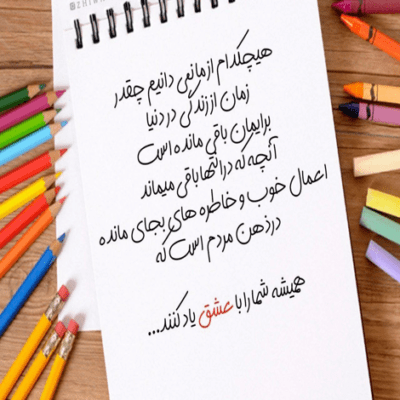 هیچکدام از ما نمی دانیم چقدر
زمان از زندگی در دنیا
برایمان باقی مانده است
آنچه که در انتها باقی میماند
اعمال خوب و خاطره های بجای مانده
در ذهن مردم است که
همیشه شما را با عشق یاد کنند...